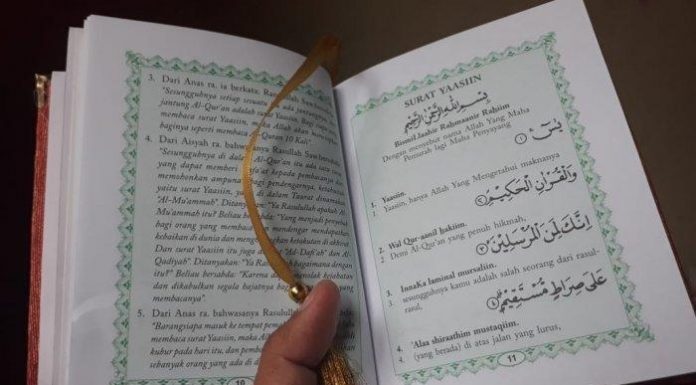 3. Dari Anas ra, ia berkata, Rasulullah Saw
"Sesungguhnya setiap sesuatu
jantung Al-Qur'an adalah surat Yaasiin,
membaca surat Yaasiin, maka Allah akan
baginya seperti membaca Al-Quran 10 Kali".
4. Dari Aisyah ra, bahwasanya Rasullah Saw
"Sesungguhnya di dalam Al-Qur'an itu ada satu
yang dapat memberi kepada pembacanya dan
memohonkan ampunan bagi pendengarnya, ketahuilah
yaitu surat Yaasiin, yang di dalam Taurat dinamakan
"Al-Mu'ammah". Ditanyakan: "Ya Rasulullah apakah Al-
Mu'ammah itu? Beliau Bersabda: "Yang menjadi
bagi orang yang membaca dan mendengar mendapatkan
kebaikan di dunia dan ketakutan di akhirat
Dan surat Yaasiin itu juga di "Ad-Dafi'ah" dan Al-
Qadiyah". Ditanyakan: "Ya Rasulullah bagaimana dengan
itu? Beliau bersabda: "Karena dapat menolak kejahatan
dan dikabulkan segala hajatnya bagi orang yang
membacanya".
5. Dari Anas ra, bahwasanya Rasulullah
"Barangsiapa masuk ke tempat
membaca surat Yaasiin, maka
kubur pada hari itu, dan
sebanyak orang yang ada di
10
SURAT YAASIIN
بِسْمِ اللهِ الرَّحْمٰنِ الرَّحِيْمِ
Bismil laahir Rahmaanir Rahiim
Dengan menyebut nama Allah Yang Maha
Pemurah lagi Maha Penyayang
يٰسۤ ۝١
1. Yaasiin.
1. Yaasiin, hanya Allah Yang Mengetahui maknanya
وَالْقُرْاٰنِ الْحَكِيْمِ ۝٢
2. Wal Qur-aanil hakiim.
2. Demi Al-Qur'an yang penuh hikmah,
اِنَّكَ لَمِنَ الْمُرْسَلِيْنَ ۝٣
3. Innaka laminal mursaliin.
3. sesungguhnya kamu adalah salah seorang dari rasul-
rasul,
عَلٰى صِرَاطٍ مُّسْتَقِيْمٍ ۝٤
4. 'Alaa shiraathim mustaqiim.
4. (yang berada) di atas jalan yang lurus,
11